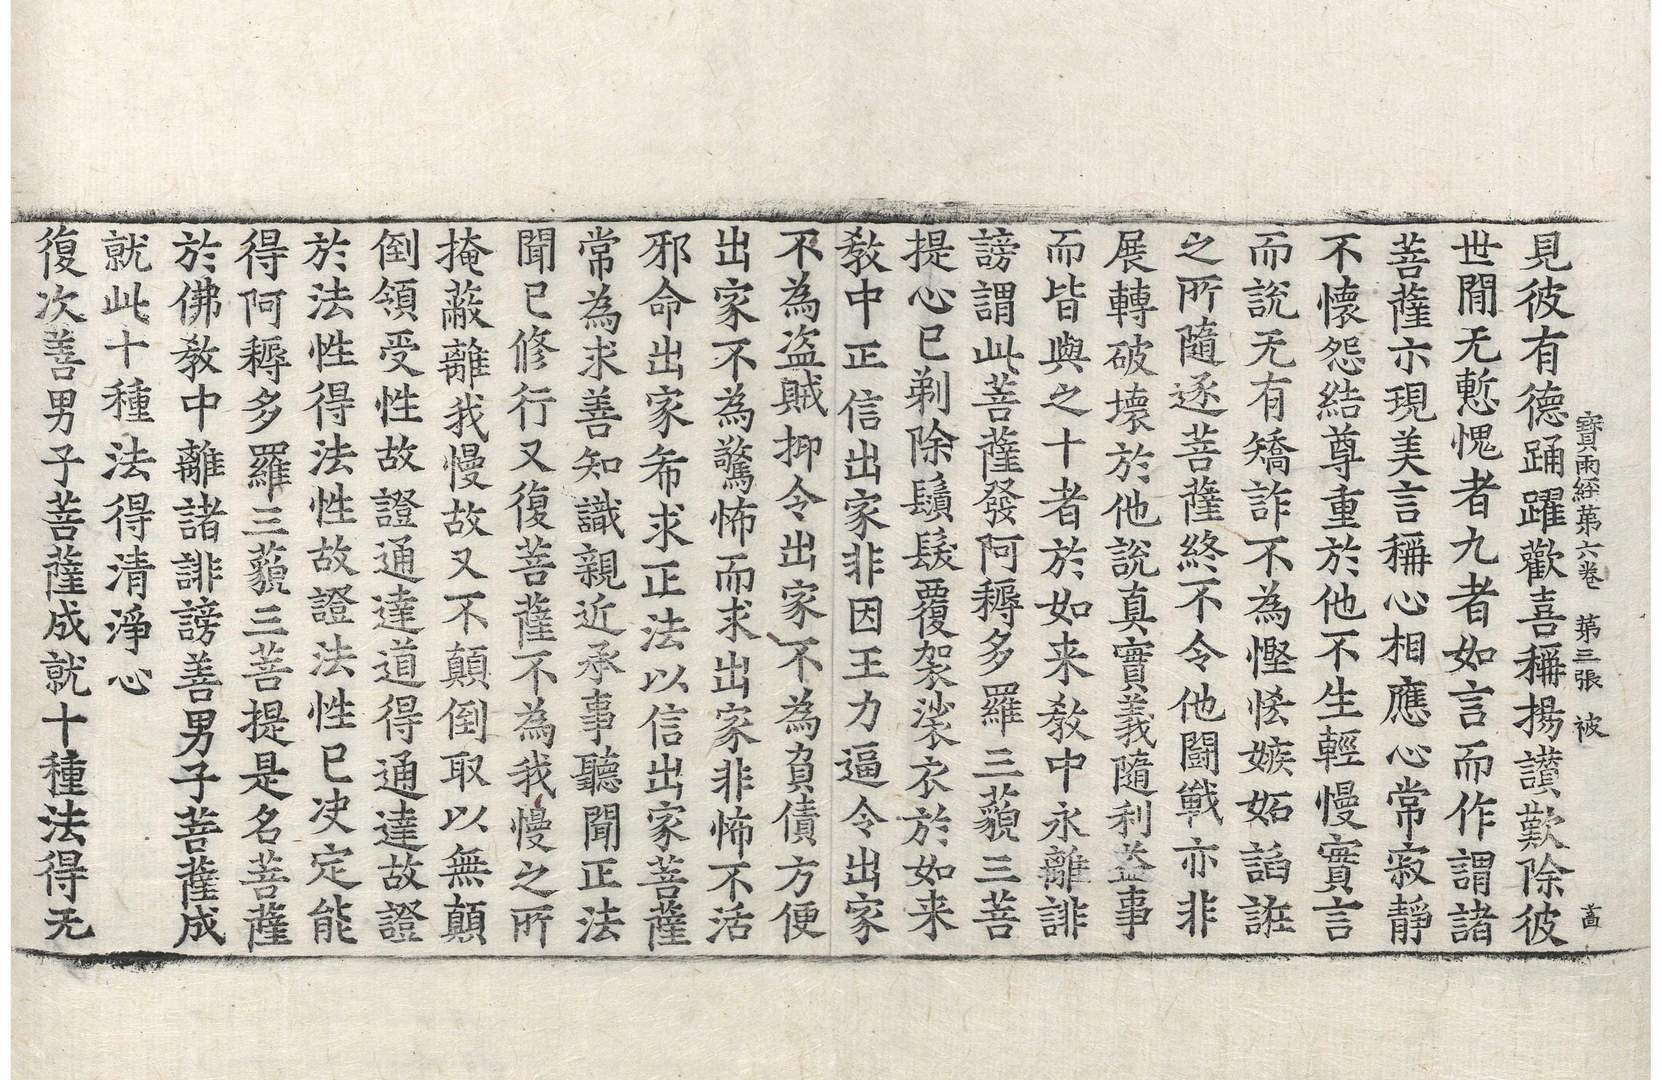 寶雨經第六卷　第三張　被
見彼有德踊躍歡喜稱揚讃歎除彼
世閒无慙愧者九者如言而作謂諸
菩薩亦現美言稱心相應心常寂靜
不懷怨結尊重於他不生輕慢實言
而說无有矯詐不為慳悋嫉妬謟誑
之所隨逐菩薩終不令他鬪戰亦非
展轉破壞於他說真實義隨利益事
而皆與之十者於如来教中永離誹
謗謂此菩薩發阿耨多羅三藐三菩
提心已剃除鬚髮覆袈裟衣於如来
教中正信出家非因王力逼令出家
不為盗賊抑令出家不為負債方便
出家不為驚怖而求出家非怖不活
邪命出家希求正法以信出家菩薩
常為求善知識親近承事聽聞正法
聞已修行又復菩薩不為我慢之所
掩蔽離我慢故又不顛倒取以無顛
倒領受性故證通達道得通達故證
於法性得法性故證法性已决定能
得阿耨多羅三藐三菩提是名菩薩
於佛教中離諸誹謗善男子菩薩成
就此十種法得清淨心
復次善男子菩薩成就十種法得无